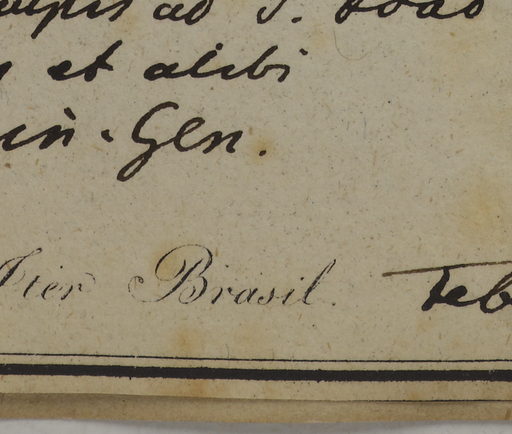 ad S. Joao
et alibi
Gen.
Iter Brasil. Feb